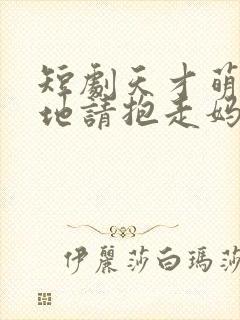 短劇天才萌
地請抱走媽
伊麗莎白瑪莎